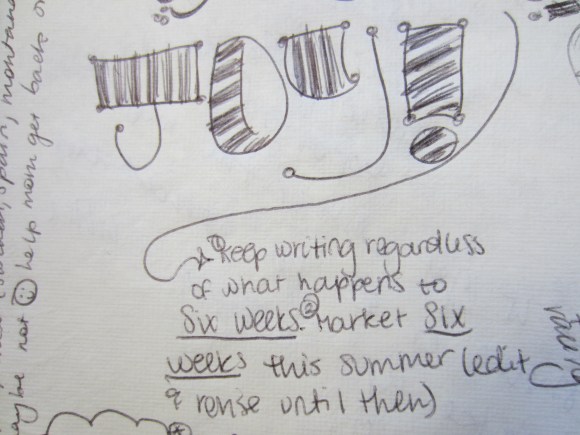 JOY!
① Keep writing regardless
of what happens to
Six Weeks. ② Market Six
Weeks this summer (edit
& revise until then)
maybe not ☺ help mom get back
spain, montana